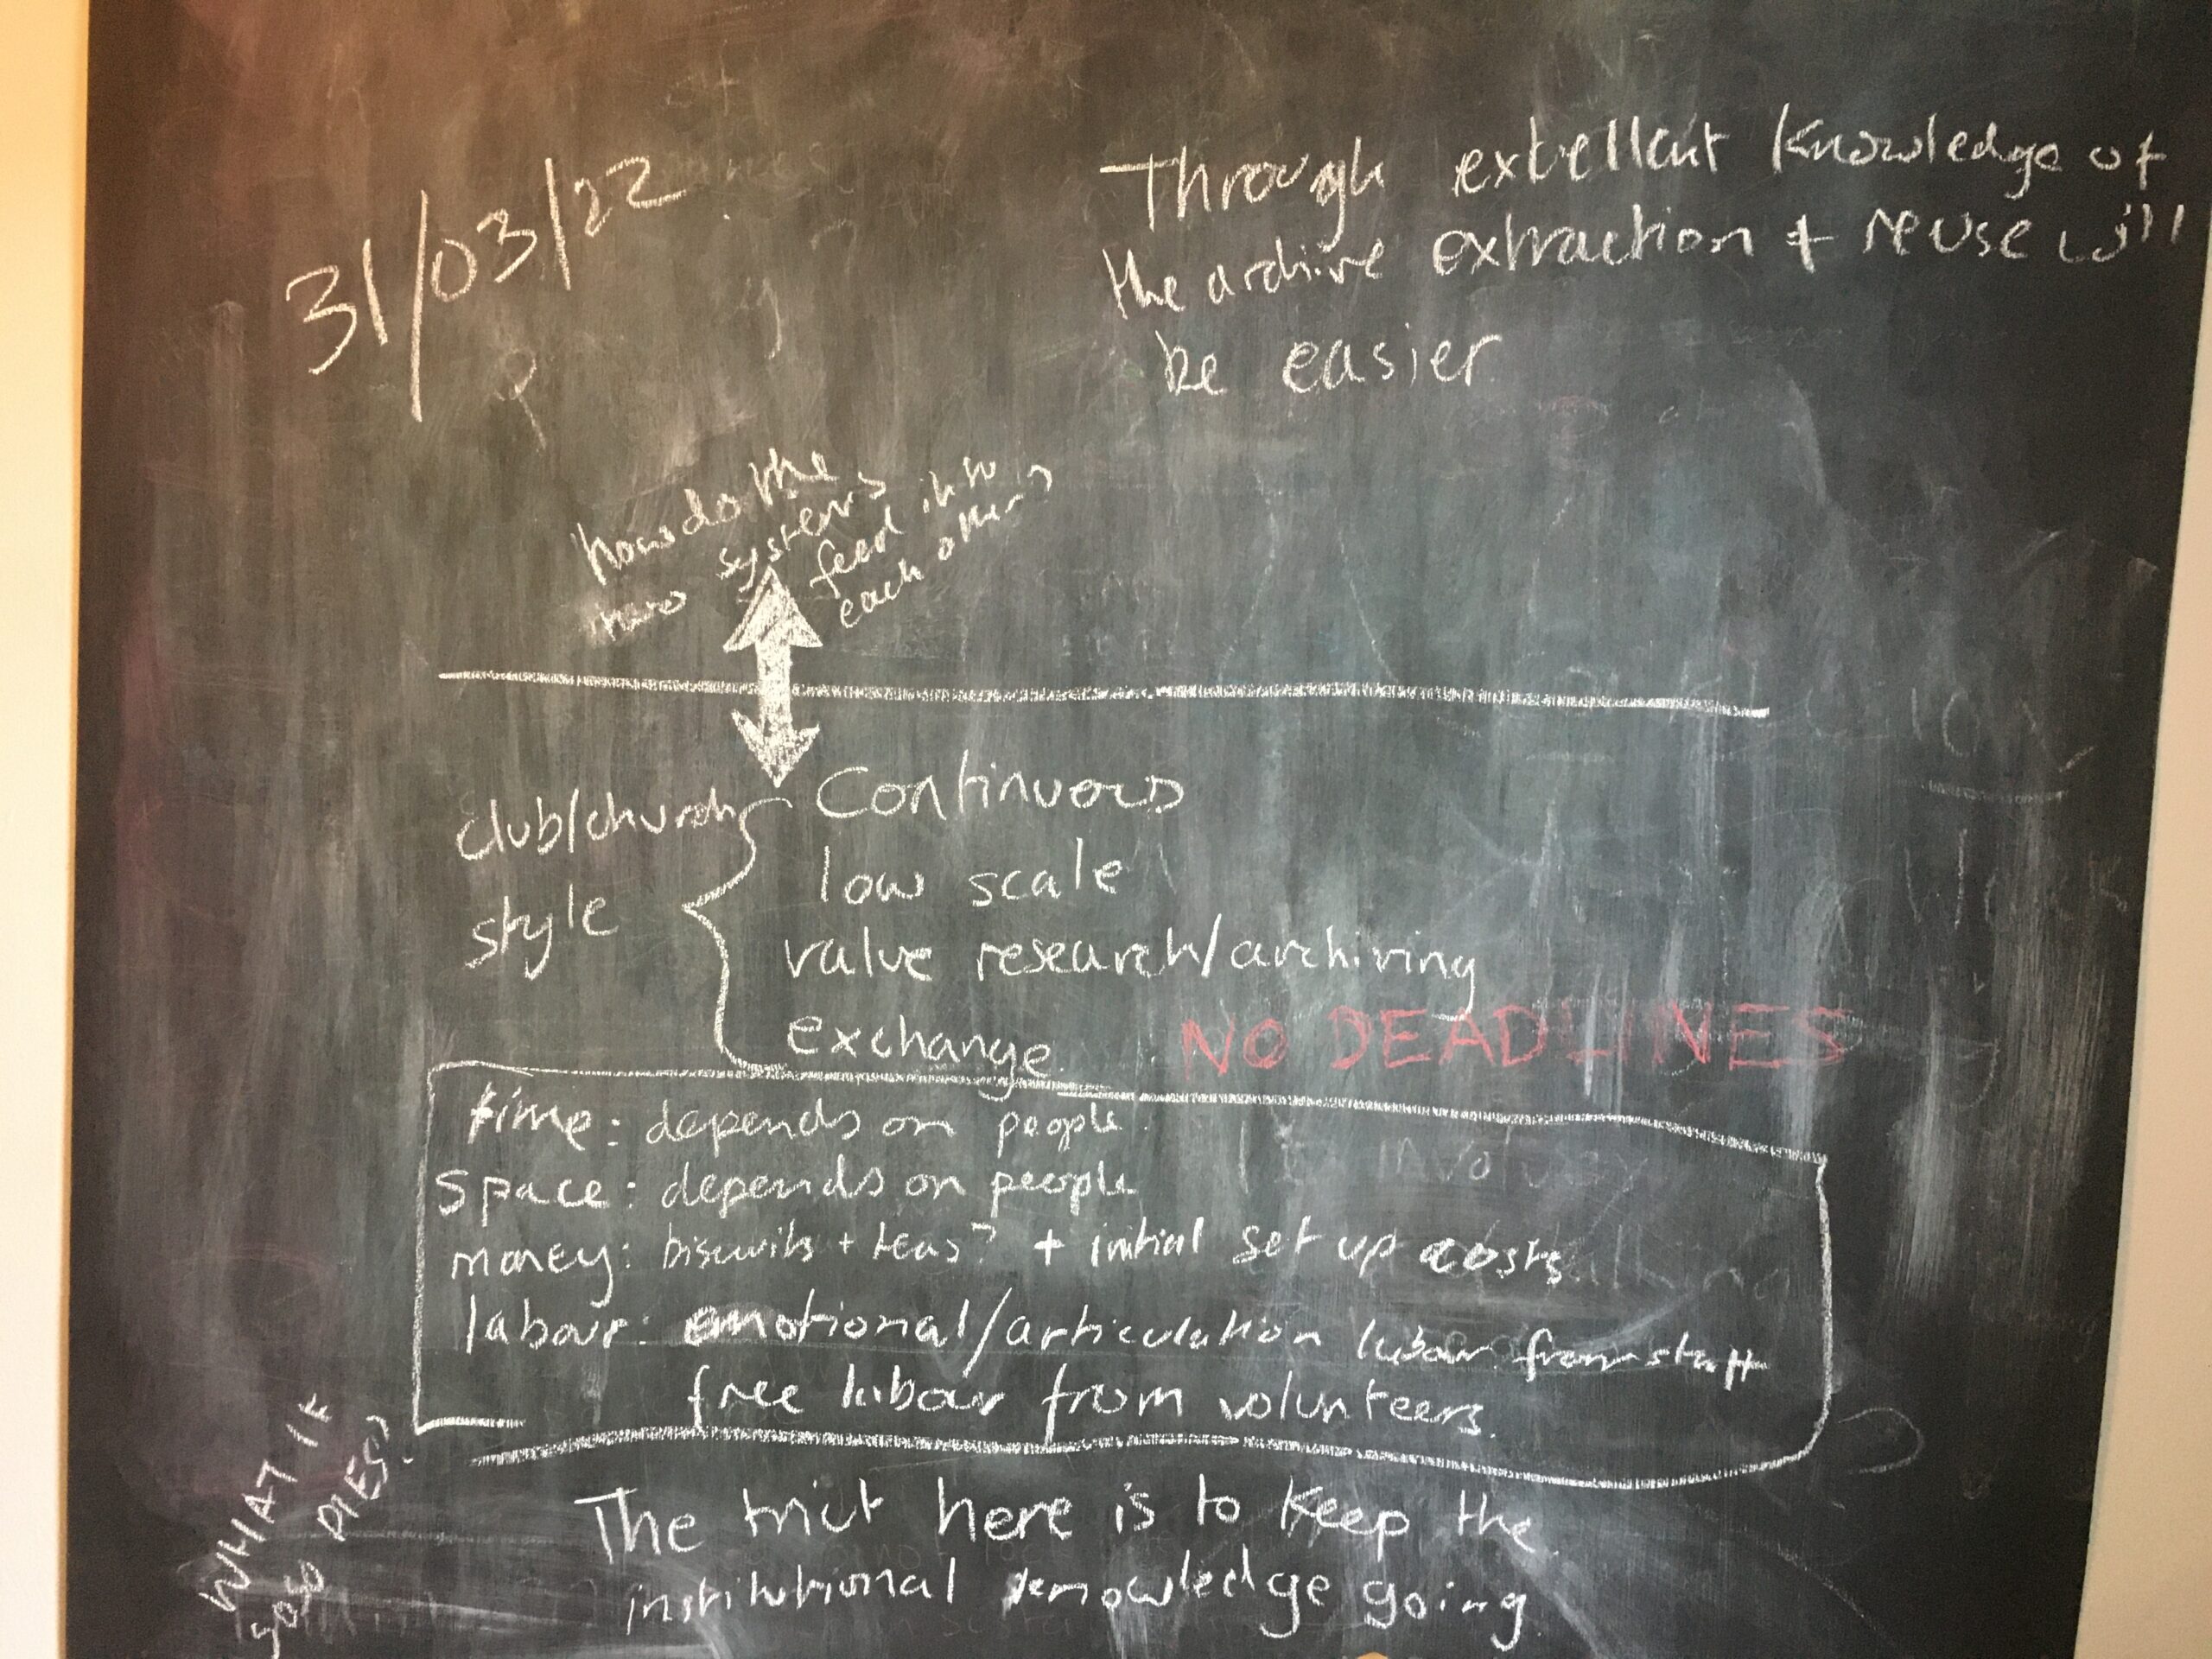 31/03/22
Through excellent knowledge of
the archive extraction + reuse will
be easier
how do the
two systems
feed into
each other?
club/church
style
Continuous
low scale
value research/archiving
exchange.
NO DEADLINES
time: depends on people.
space: depends on people
money: biscuits + teas? + initial set up costs
labour: emotional/articulation labour from staff
free labour from volunteers.
WHAT IF
DIES?
The trick here is to keep the
institutional knowledge going